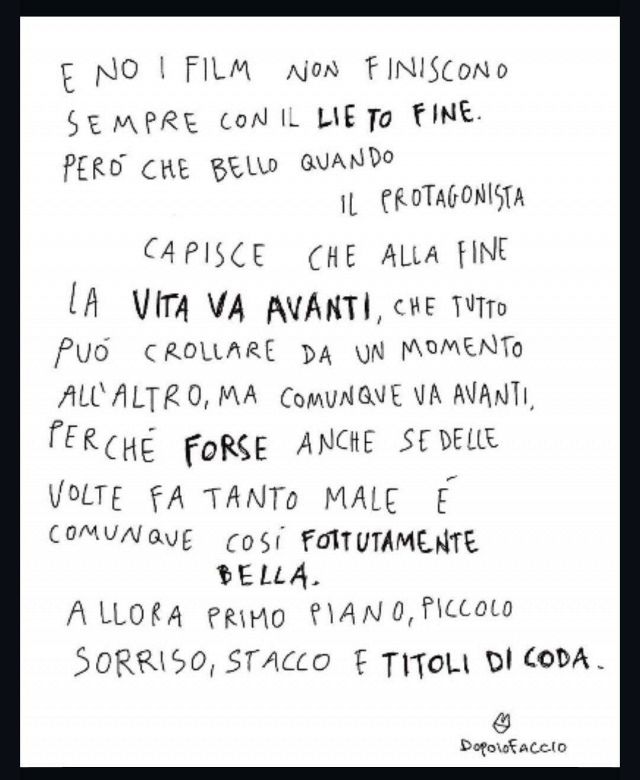 E NO I FILM NON FINISCONO
SEMPRE CON IL LIETO FINE.
PERÓ CHE BELLO QUANDO
IL PROTAGONISTA
CAPISCE CHE ALLA FINE
LA VITA VA AVANTI, CHE TUTTO
PUÓ CROLLARE DA UN MOMENTO
ALL'ALTRO, MA COMUNQUE VA AVANTI,
PERCHÉ FORSE ANCHE SE DELLE
VOLTE FA TANTO MALE É
COMUNQUE COSÍ FOTTUTAMENTE
BELLA.
ALLORA PRIMO PIANO, PICCOLO
SORRISO, STACCO E TITOLI DI CODA.
DOPOLOFACCIO